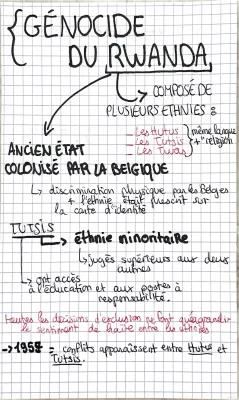 GÉNOCIDE
DU RWANDA
COMPOSÉ DE
PLUSIEURS ETHNIES :
- Les Hutus
- Les Tutsis
- Les Twas
même langue
+ "religion
ANCIEN ÉTAT
COLONISÉ PAR LA BELGIQUE
↳ discrimination physique par les Belges
+ l'ethnie était prescrit sur
la carte d'identité
TUTSIS
↳ éthnie minoritaire
↳ jugés supérieurs aux deux
autres
↳ ont accès
à l'éducation et aux postes à
responsabilité.
toutes les décisions d'exclusion ne font qu'agrandir
le sentiment de haine entre les ethnies
→ 1959 = conflits apparaissent entre Hutus et
Tutsis.